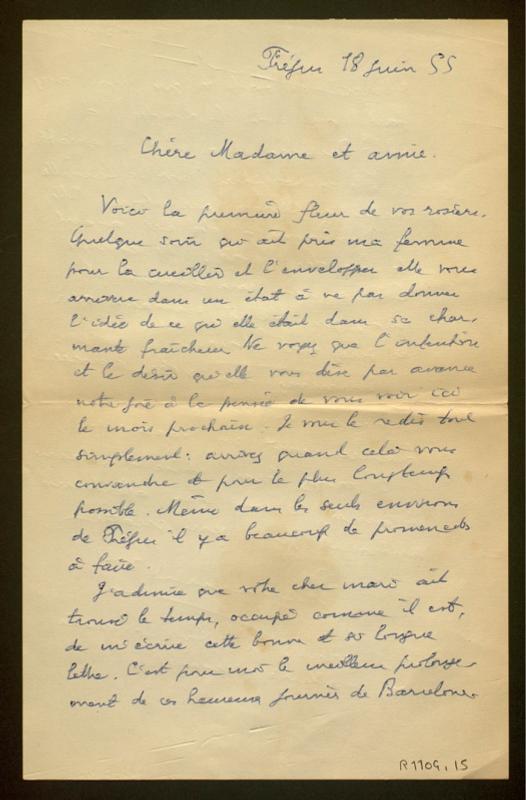 Fréjus 18 juin 55
Chère Madame et amie.
Voici la première fleur de vos rosiers.
Quelque soin qu'ait pris ma femme
pour la cueillir et l'envelopper elle vous
arrivera dans un état à ne pas donner
l'idée de ce qu'elle était dans sa char-
mante fraîcheur. Ne voyez que l'intention
et le désir qu'elle vous dise par avance
notre joie à la pensée de vous voir ici
le mois prochain. Je vous le redis tout
simplement: arrivez quand cela vous
conviendra et pour le plus longtemps
possible. Même dans les seuls environs
de Fréjus il y a beaucoup de promenades
à faire.
J'admire que votre cher mari ait
trouvé le temps, occupé comme il est,
de m'écrire cette bonne et si longue
lettre. C'est pour moi le meilleur prolonge-
ment de ces heureuses journées de Barcelone.
R1109,15